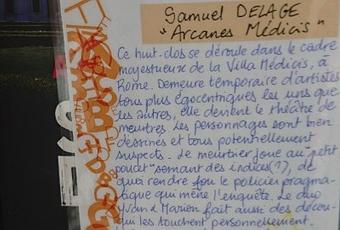 Samuel DELAGE
"Arcanes Médicis"
Ce huit-clos se déroule dans le cadre
majestueux de la Villa Médicis, à
Rome. Demeure temporaire d'artistes
tous plus égocentriques les uns que
les autres, elle devient le théâtre de
meurtres les personnages sont bien
dessinés et tous potentiellement
suspects. Le meurtrier joue au "petit
poucet" semant des indices(?), de
quoi rendre fou le policier pragma-
tique qui mène l'enquête. Le duo
Yvan & Marion fait aussi des décou-
qui les touchent personnellement.